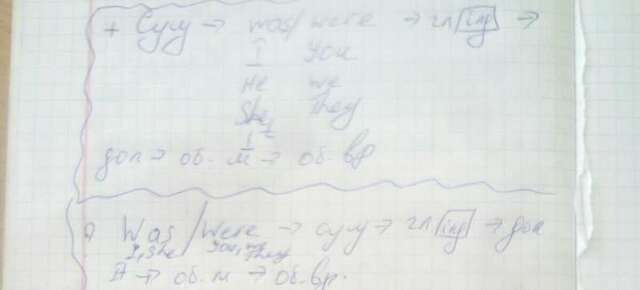 + Сущ → was/were → гл ing →
I you
He we
She They
It
доп → об. м → об. вр
? Was/Were → сущ → гл ing → доп
I, she You, we They
→ об. м → об. вр.